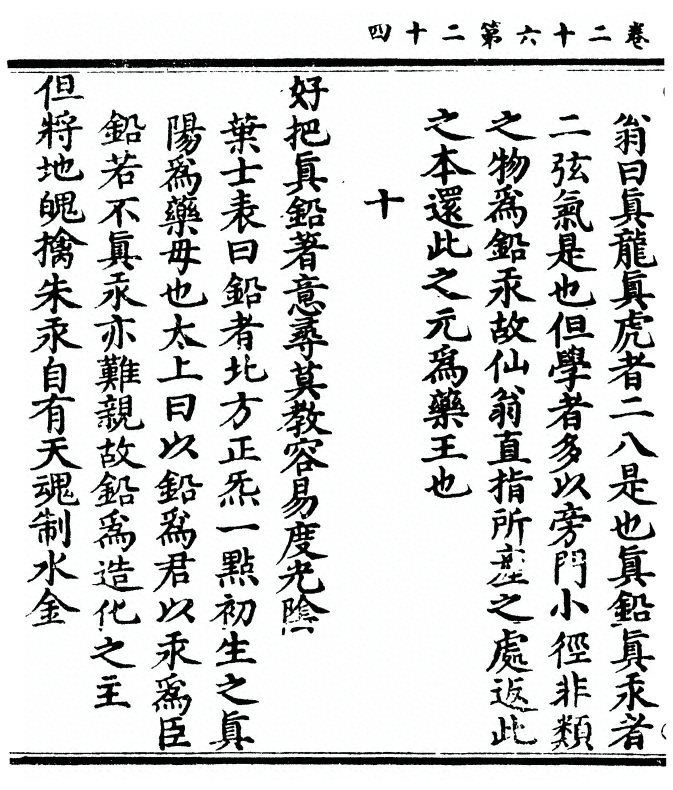 卷二十六第二十四
翁曰眞龍眞虎者二八是也眞鉛眞汞者
二弦氣是也但學者多以旁門小徑非類
之物爲鉛汞故仙翁直指所產之處返此
之本還此之元爲藥王也
十
好把眞鉛著意尋莫教容易度光陰
葉士表曰鉛者北方正炁一點初生之眞
陽爲藥母也太上曰以鉛爲君以汞爲臣
鉛若不眞汞亦難親故鉛爲造化之主
但將地魄擒朱汞自有天魂制水金